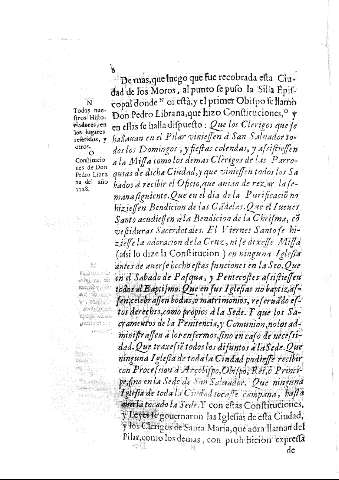 8
De mas, que luego que fue recobrada esta Ciu-
dad de los Moros, al punto se puso la Silla Epis-
copal donde oi está, y el primer Obispo se llamò
Don Pedro Librana, que hizo Constituciones, o y
en ellas se halla dispuesto: Que los Clerigos que se
hallauan en el Pilar viniessen à San Saluador to-
dos los Domingos, y fiestas colendas, y assistiessen
a la Missa como los demas Clerigos de las Parro-
quias de dicha Ciudad, y que viniessen todos los Sa-
bados à recibir el Oficio, que auian de rezar la se-
mana siguiente. Que en el dia de la Purificaciõ no
hiziessen Bendicion de las Cãdelas. Que el Iueues
Santo acudiessen à la Bendicion de la Chrisma, cõ
vestiduras Sacerdotales. El Viernes Santo se hi-
ziesse la adoracion de la Cruz, ni se dixesse Missa
(assi lo dize la Constitucion) en ninguna Iglesia
antes de auerse hecho estas funciones en la Seo. Que
en el Sabado de Pasqua, y Pentecostes assistiessen
todos al Baptismo. Que en sus Iglesias no baptizas-
sen, celebrassen bodas, ò matrimonios, reseruado es-
tos derechos, como propios à la Sede. Y que los Sa-
cramentos de la Penitencia, y Comunion, no los ad-
ministrassen à los enfermos, sino en caso de necessi-
dad. Que traxessẽ todos los difuntos à la Sede. Que
ninguna Iglesia de toda la Ciudad pudiesse recibir
con Procession à Arçobispo, Obispo, Rei, ò Princi-
pe, sino en la Sede de San Saluador. Que ninguna
Iglesia de toda la Ciudad tocasse campana, hasta
auer la tocado la Sede. Y con estas Constituciones,
y Leyes se gouernaron las Iglesias de esta Ciudad,
y los Clerigos de Santa Maria, que aora llaman del
Pilar, como los demas, con prohibicion expressa
de
N
Todos nue-
stros Histo-
riadores, en
los lugares
referidos, y
otros.
O
Constitucio-
nes de Don
Pedro Librana
del año